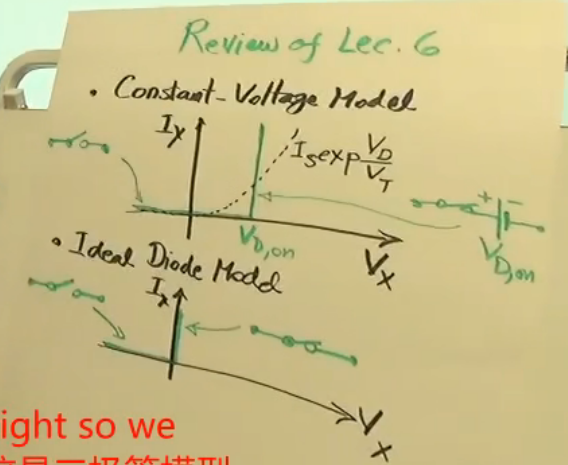 Review of Lec. 6
• Constant-Voltage Model
I_X
I_S exp V_D/V_T
+ -
V_D,on
V_D,on
V_X
• Ideal Diode Model
I_X
V_X
ight so we